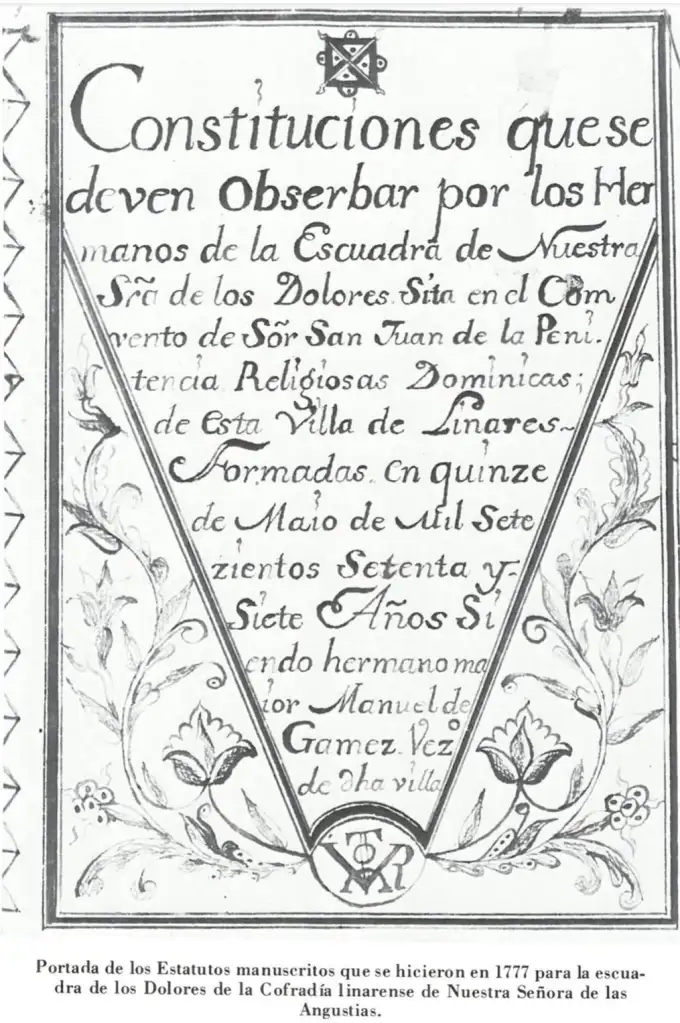 Constituciones que se
deven Obserbar por los Her
manos de la Escuadra de Nuestra
Sra̅ de los Dolores. Sita en el Com
vento de Sor̅ San Juan de la Peni.
tencia Religiosas Dominicas;
de Esta Villa de Linares
Formadas. en quinze
de Maio de Mil Sete
zientos Setenta y
Siete Años Si
endo hermano ma
ior Manuel de
Gamez. Vez.º
de dha villa
Portada de los Estatutos manuscritos que se hicieron en 1777 para la escua-
dra de los Dolores de la Cofradía linarense de Nuestra Señora de las
Angustias.